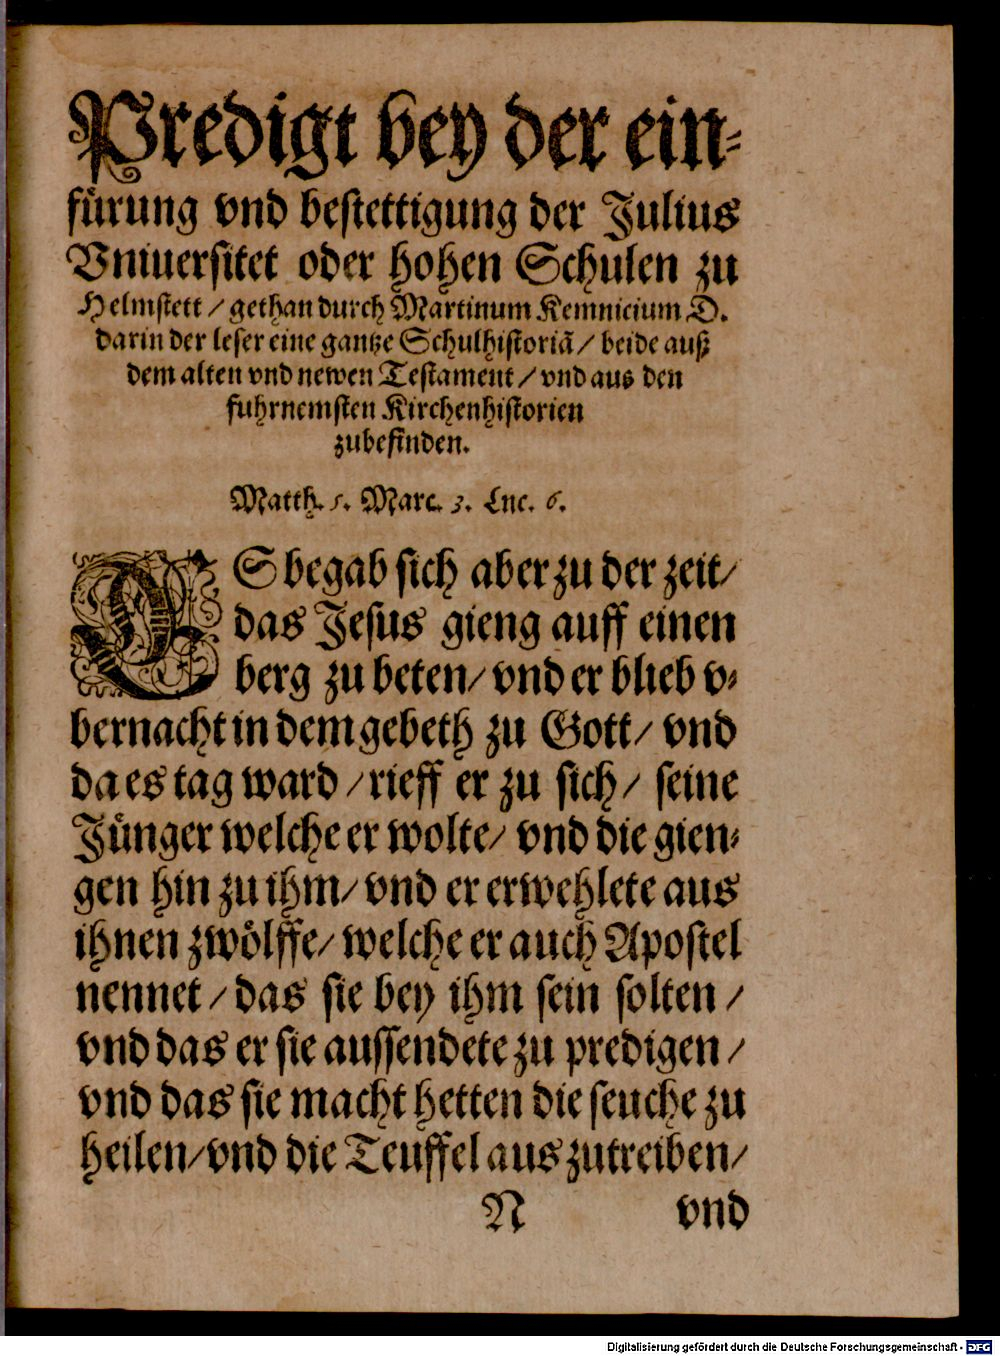 Predigt bey der ein⸗
fürung vnd bestettigung der Julius
Vniuersitet oder hohen Schulen zu
Helmstett / gethan durch Martinum Kemnicium D.
darin der leser eine gantze Schulhistoriā / beide auß
dem alten vnd newen Testament / vnd aus den
fuhrnemsten Kirchenhistorien
zubefinden.
Matth. 5. Marc. 3. Luc. 6.
ES begab sich aber zu der zeit /
das Jesus gieng auff einen
berg zu beten / vnd er blieb v⸗
bernacht in dem gebeth zu Gott / vnd
da es tag ward / rieff er zu sich / seine
Jünger welche er wolte / vnd die gien⸗
gen hin zu ihm / vnd er erwehlete aus
ihnen zwölffe / welche er auch Apostel
nennet / das sie bey ihm sein solten /
vnd das er sie aussendete zu predigen /
vnd das sie macht hetten die seuche zu
heilen / vnd die Teuffel auszutreiben /
N vnd
Digitalisierung gefördert durch die Deutsche Forschungsgemeinschaft - DFG